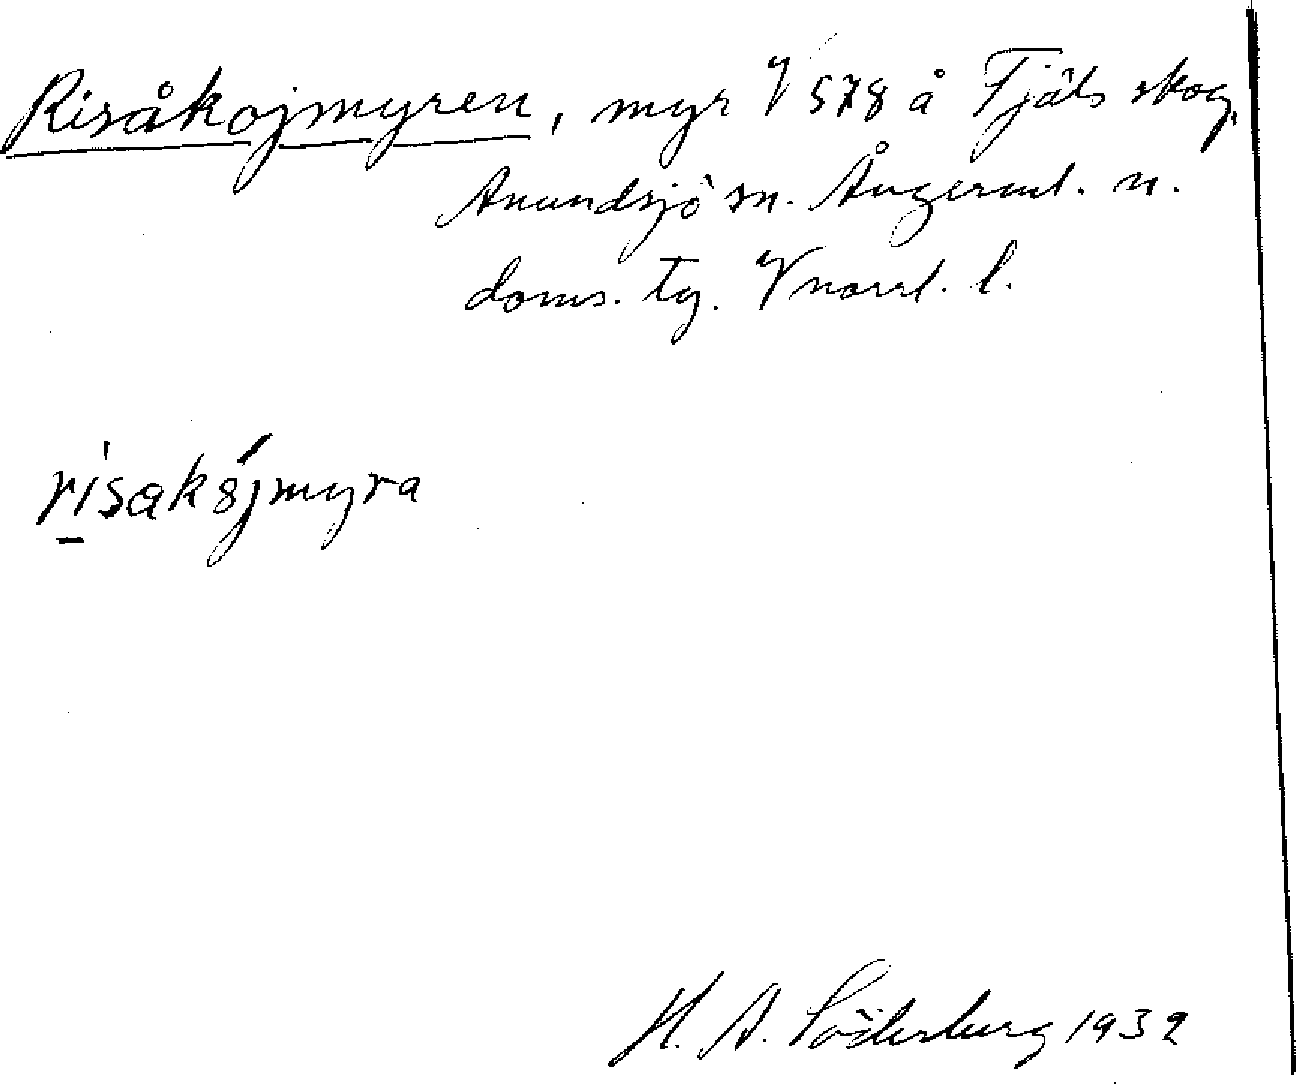 Risåkojmyren, myr V 578 å Fjäls skog,
Anundsjö sn. Ångerml. n.
doms. tg. Vnorrl. l.
risakojmyra
H. A. Söderberg 1932